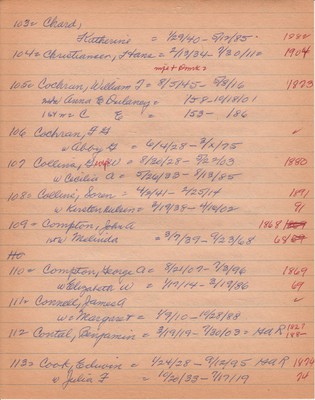 103= Chard,
Katherine = 1/29/40 - 5/17/85. 1880
104= Christiansen, Hans = 2/13/34 - 7/30/11= 1904
105= Cochran, William T= 8/5/45 - 5/8/16 1873
Anna E Dulaney = 158 - 10/18/01
C E = 153 - 186
106 Cochran, F G
w Abby G = 6/14/28 - 3/2/75
107 Collins, Geo W = 8/20/28 - 9/2=/03 1880
w Cecilia A = 5/26/33 - 4/13/85
108= Collins, Soren = 4/2/41 - 4/25/14 1891
w = 9/19/38 - 4/12/02 91
109= Compton, John A 1868
Melinda = 3/7/39 - 9/23/68 68
110= Compton, George A = 8/21/07 - 7/3/96 1869
w Elizabeth W = 1/17/14 - 3/19/86 69
111= Connell, James A
w= Margaret = 4/9/10 - 10/28/88
112 Contal, Benjamin = 3/19/19 - 7/30/03 = GAR
113= Cook, Edwin = 1/24/28 - 9/12/95 GAR 1874
w Julia F = 10/20/33 - 7/17/19 74